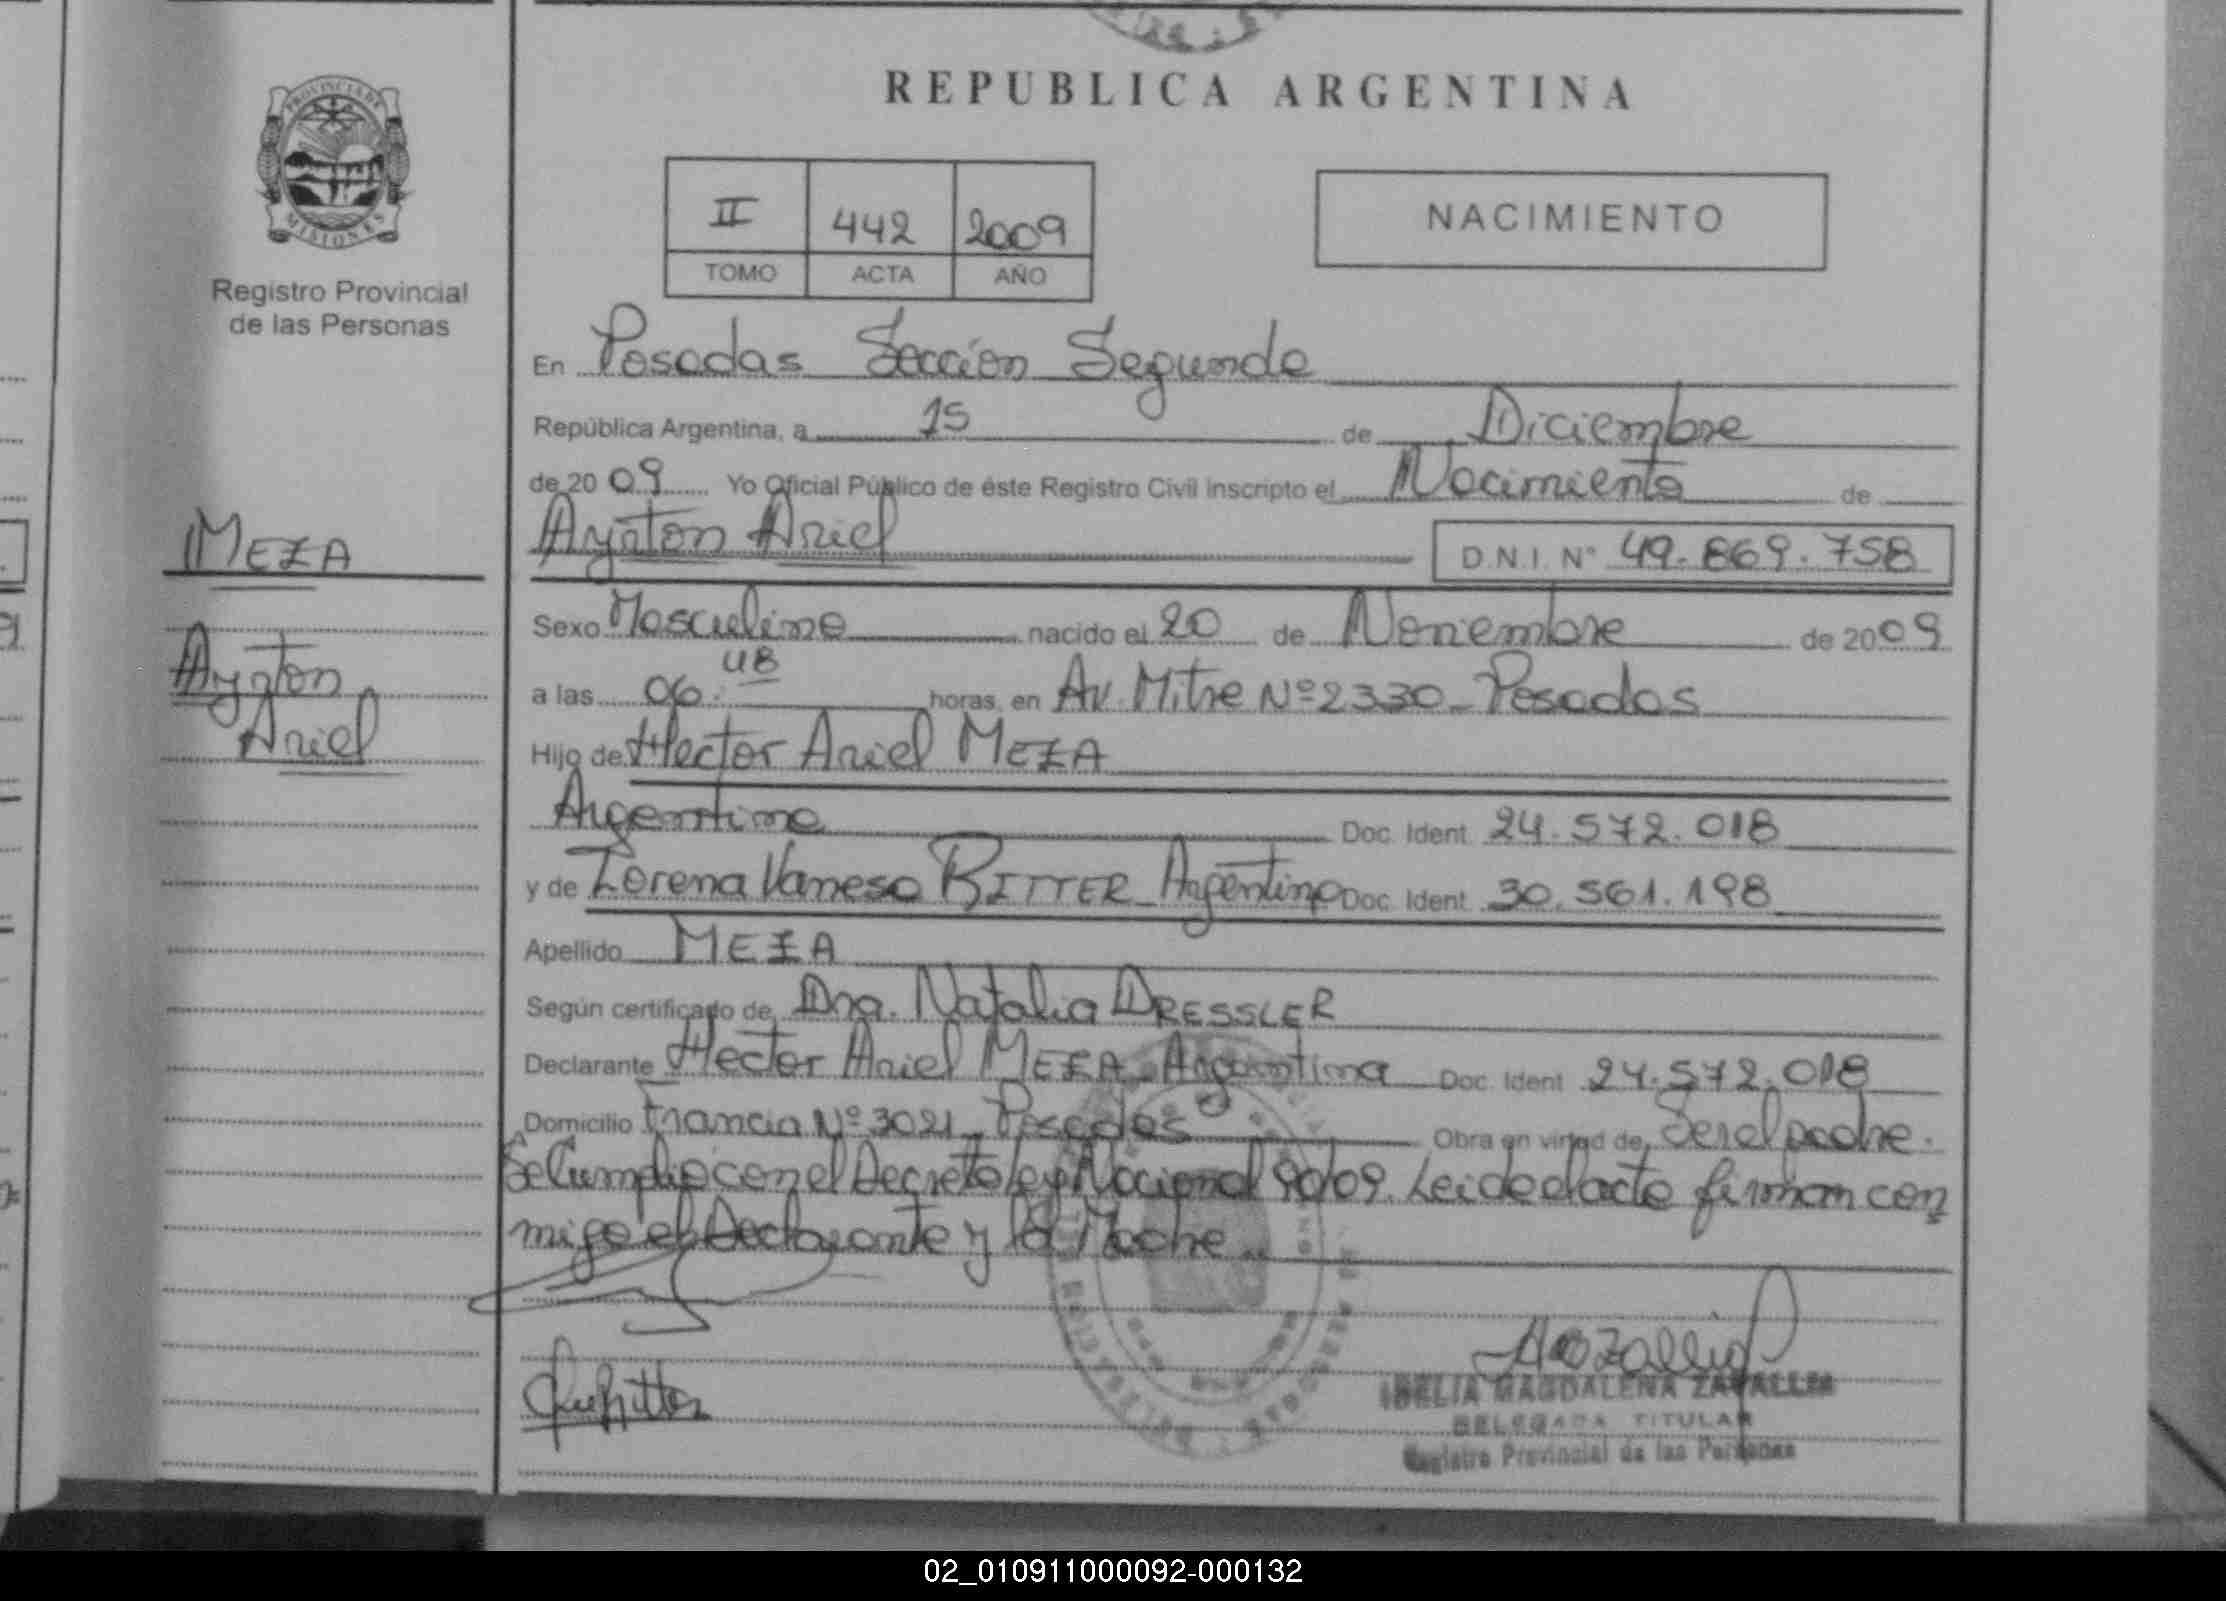 REPUBLICA ARGENTINA
PROVINCIA DE MISIONES
Registro Provincial
de las Personas
II 442 2009
TOMO ACTA AÑO
NACIMIENTO
En Posadas Sección Segunda
República Argentina, a 15 de Diciembre
de 2009 Yo Oficial Público de éste Registro Civil inscripto el Nacimiento de
Ayrton Ariel D.N.I. N° 49.869.758
MEZA
Sexo Masculino nacido el 20 de Noviembre de 2009
Ayrton
Ariel
a las 06:48 horas, en Av. Mitre Nº 2330 - Posadas
Hijo de Hector Ariel MEZA
Argentino Doc. Ident. 24.572.018
y de Lorena Vanesa RITTER - Argentina Doc. Ident. 30.561.198
Apellido MEZA
Según certificado de Dra. Natalia DRESSLER
Declarante Hector Ariel MEZA - Argentina Doc. Ident. 24.572.018
Domicilio Francia Nº 3021 - Posadas Obra en virtud de Ser el padre.
Se Cumplio con el Decreto ley Nacional 90/09. Leida el acta firman con
migo el Declarante y la Madre.
IBELIA MAGDALENA ZAVALLIA
DELEGADA TITULAR
Registro Provincial de las Personas
02_010911000092-000132